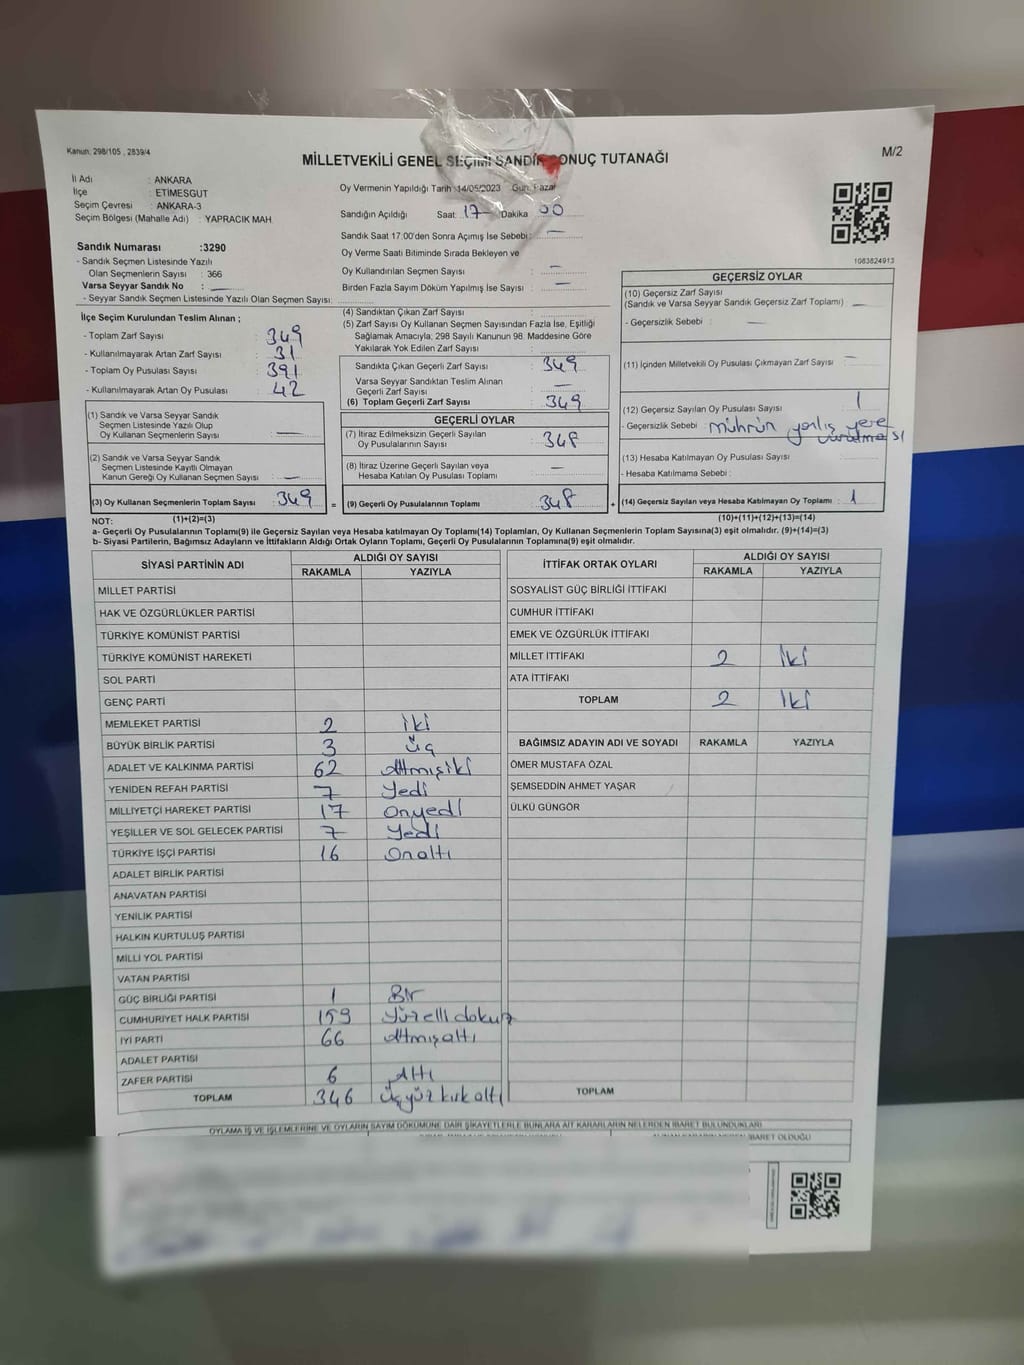 Kanun: 298/105, 2839/4
MİLLETVEKİLİ GENEL SEÇİMİ SANDIK SONUÇ TUTANAĞI
M/2
İl Adı : ANKARA
İlçe : ETİMESGUT
Seçim Çevresi : ANKARA-3
Seçim Bölgesi (Mahalle Adı) : YAPRACIK MAH.
Sandık Numarası :3290
- Sandık Seçmen Listesinde Yazılı
Olan Seçmenlerin Sayısı : 366
Varsa Seyyar Sandık No : —
- Seyyar Sandık Seçmen Listesinde Yazılı Olan Seçmen Sayısı:
Oy Vermenin Yapıldığı Tarih :14/05/2023 Gün: Pazar
Sandığın Açıldığı Saat: 17 Dakika 00
Sandık Saat 17:00'den Sonra Açımış İse Sebebi: —
Oy Verme Saati Bitiminde Sırada Bekleyen ve
Oy Kullandırılan Seçmen Sayısı : —
Birden Fazla Sayım Döküm Yapılmış İse Sayısı : —
1083824913
İlçe Seçim Kurulundan Teslim Alınan ;
- Toplam Zarf Sayısı : 349
- Kullanılmayarak Artan Zarf Sayısı : 31
- Toplam Oy Pusulası Sayısı : 391
- Kullanılmayarak Artan Oy Pusulası : 42
(1) Sandık ve Varsa Seyyar Sandık
Seçmen Listesinde Yazılı Olup
Oy Kullanan Seçmenlerin Sayısı : —
(2) Sandık ve Varsa Seyyar Sandık
Seçmen Listesinde Kayıtlı Olmayan
Kanun Gereği Oy Kullanan Seçmen Sayısı : —
(3) Oy Kullanan Seçmenlerin Toplam Sayısı : 349 =
(1)+(2)=(3)
(4) Sandıktan Çıkan Zarf Sayısı :
(5) Zarf Sayısı Oy Kullanan Seçmen Sayısından Fazla İse, Eşitliği
Sağlamak Amacıyla; 298 Sayılı Kanunun 98. Maddesine Göre
Yakılarak Yok Edilen Zarf Sayısı :
Sandıkta Çıkan Geçerli Zarf Sayısı : 349
Varsa Seyyar Sandıktan Teslim Alınan
Geçerli Zarf Sayısı : —
(6) Toplam Geçerli Zarf Sayısı : 349
GEÇERLİ OYLAR
(7) İtiraz Edilmeksizin Geçerli Sayılan
Oy Pusulalarının Sayısı : 348
(8) İtiraz Üzerine Geçerli Sayılan veya
Hesaba Katılan Oy Pusulası Toplamı : —
(9) Geçerli Oy Pusulalarının Toplamı : 348 +
GEÇERSİZ OYLAR
(10) Geçersiz Zarf Sayısı
(Sandık ve Varsa Seyyar Sandık Geçersiz Zarf Toplamı) : —
- Geçersizlik Sebebi : —
(11) İçinden Milletvekili Oy Pusulası Çıkmayan Zarf Sayısı : —
(12) Geçersiz Sayılan Oy Pusulası Sayısı : 1
- Geçersizlik Sebebi : mührün yanlış yere
vurulması
(13) Hesaba Katılmayan Oy Pusulası Sayısı :
- Hesaba Katılmama Sebebi :
(14) Geçersiz Sayılan veya Hesaba Katılmayan Oy Toplamı : 1
(10)+(11)+(12)+(13)=(14)
NOT:
a- Geçerli Oy Pusulalarının Toplamı(9) ile Geçersiz Sayılan veya Hesaba katılmayan Oy Toplamı(14) Toplamları, Oy Kullanan Seçmenlerin Toplam Sayısına(3) eşit olmalıdır. (9)+(14)=(3)
b- Siyasi Partilerin, Bağımsız Adayların ve İttifakların Aldığı Ortak Oyların Toplamı, Geçerli Oy Pusulalarının Toplamına(9) eşit olmalıdır.
SİYASİ PARTİNİN ADI ALDIĞI OY SAYISI
RAKAMLA YAZIYLA
MİLLET PARTİSİ
HAK VE ÖZGÜRLÜKLER PARTİSİ
TÜRKİYE KOMÜNİST PARTİSİ
TÜRKİYE KOMÜNİST HAREKETİ
SOL PARTİ
GENÇ PARTİ
MEMLEKET PARTİSİ 2 iki
BÜYÜK BİRLİK PARTİSİ 3 üç
ADALET VE KALKINMA PARTİSİ 62 Altmışiki
YENİDEN REFAH PARTİSİ 7 Yedi
MİLLİYETÇİ HAREKET PARTİSİ 17 Onyedi
YEŞİLLER VE SOL GELECEK PARTİSİ 7 Yedi
TÜRKİYE İŞÇİ PARTİSİ 16 Onaltı
ADALET BİRLİK PARTİSİ
ANAVATAN PARTİSİ
YENİLİK PARTİSİ
HALKIN KURTULUŞ PARTİSİ
MİLLİ YOL PARTİSİ
VATAN PARTİSİ
GÜÇ BİRLİĞİ PARTİSİ 1 Bir
CUMHURİYET HALK PARTİSİ 159 Yüzellidokuz
İYİ PARTİ 66 Altmışaltı
ADALET PARTİSİ
ZAFER PARTİSİ 6 Altı
TOPLAM 346 üçyüz kırkaltı
İTTİFAK ORTAK OYLARI ALDIĞI OY SAYISI
RAKAMLA YAZIYLA
SOSYALİST GÜÇ BİRLİĞİ İTTİFAKI
CUMHUR İTTİFAKI
EMEK VE ÖZGÜRLÜK İTTİFAKI
MİLLET İTTİFAKI 2 İki
ATA İTTİFAKI
TOPLAM 2 İki
BAĞIMSIZ ADAYIN ADI VE SOYADI RAKAMLA YAZIYLA
ÖMER MUSTAFA ÖZAL
ŞEMSEDDİN AHMET YAŞAR
ÜLKÜ GÜNGÖR
TOPLAM
OYLAMA İŞ VE İŞLEMLERİNE VE OYLARIN SAYIM DÖKÜMÜNE DAİR ŞİKAYETLERLE BUNLARA AİT KARARLARIN NELERDEN İBARET BULUNDUKLARI
İBARET OLDUĞU